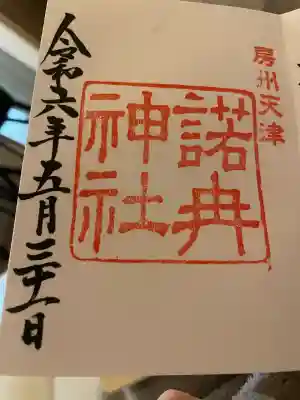 房州天津
諾冉
神社
令和六年五月三十一日